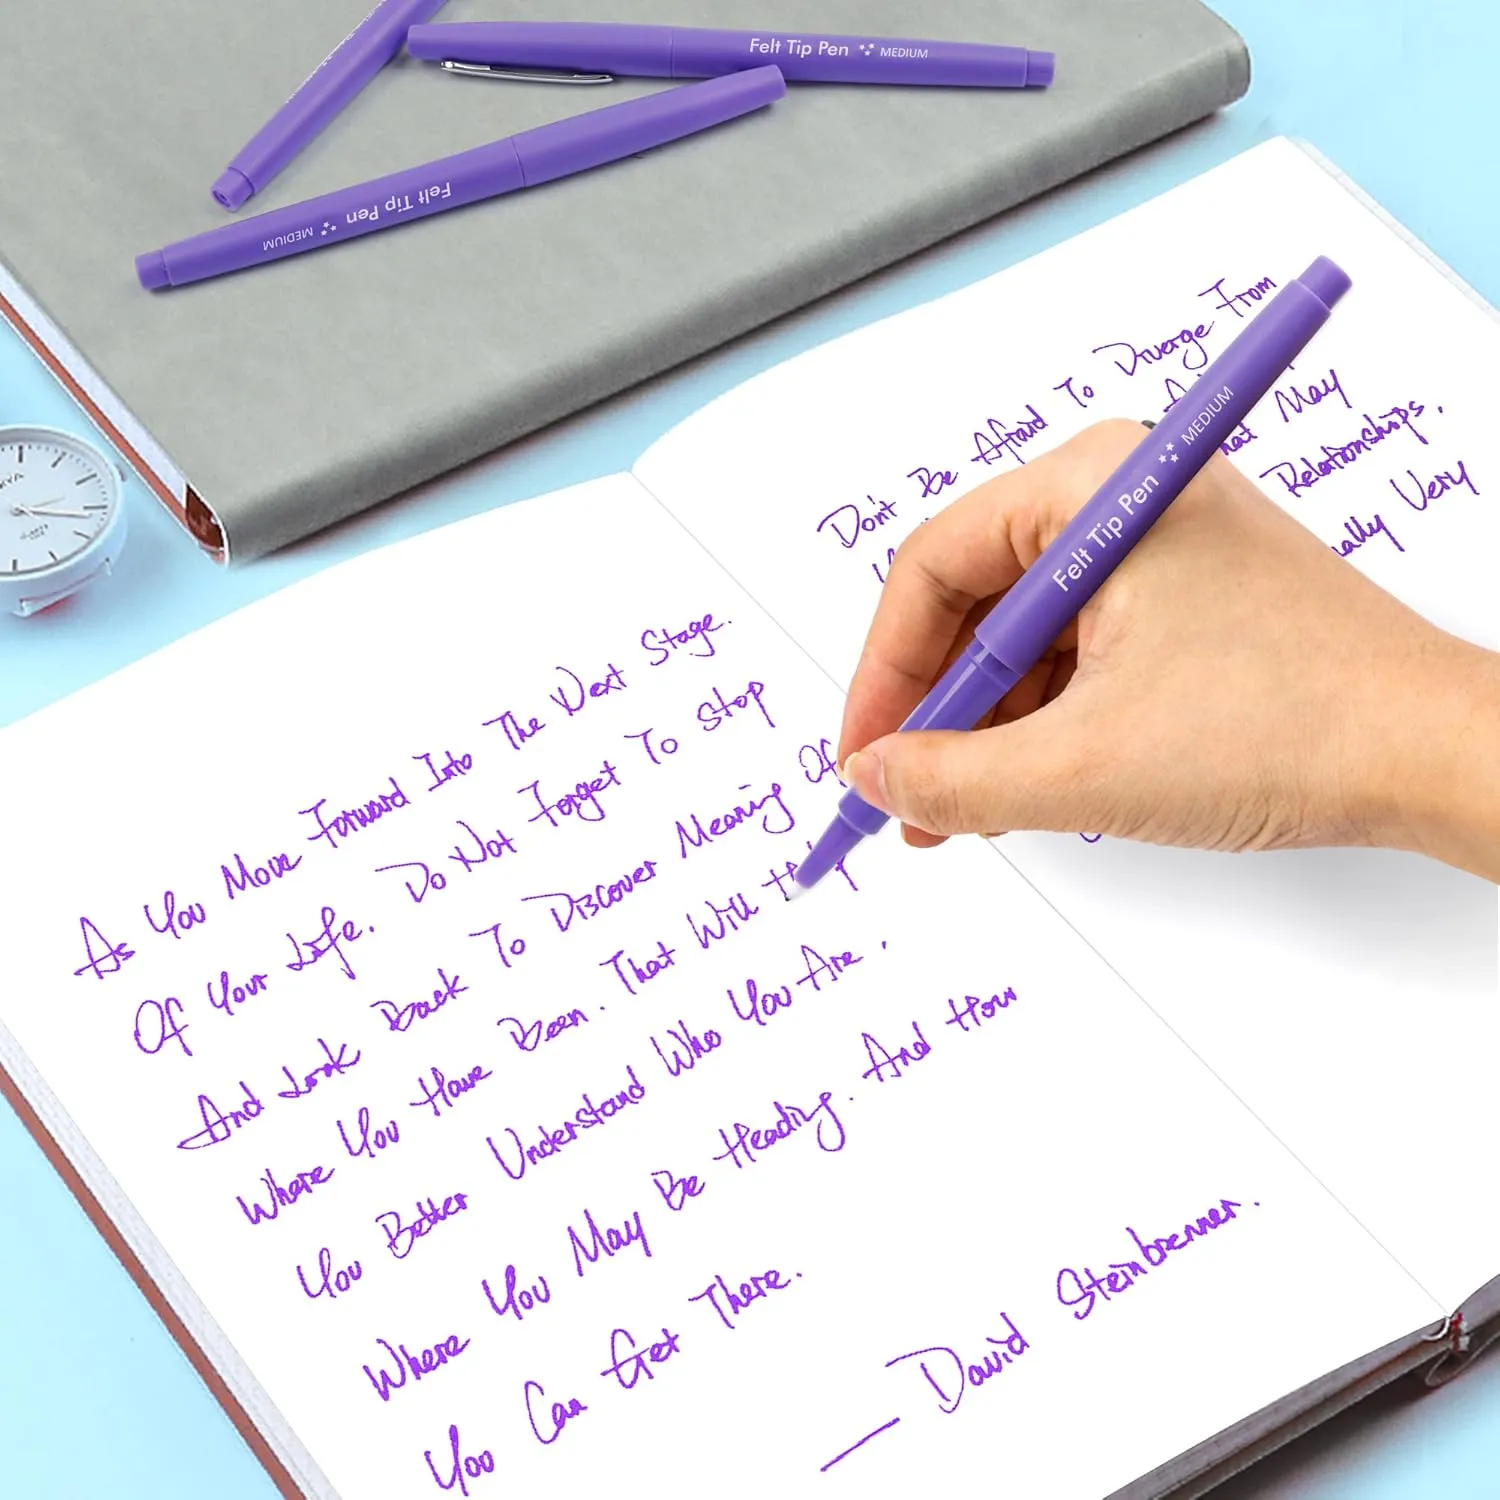 Felt Tip Pen MEDIUM
Felt Tip Pen MEDIUM
Felt Tip Pen MEDIUM
As You Move Forward Into The Next Stage.
Of Your Life. Do Not Forget To Stop
And Look Back To Discover Meaning Of
Where You Have Been. That Will
You Better Understand Who You Are.
Where You May Be Heading. And How
You Can Get There.
— David Steinbrenner.
Don't Be Afraid To Diverge From
May
Relationships,
Very